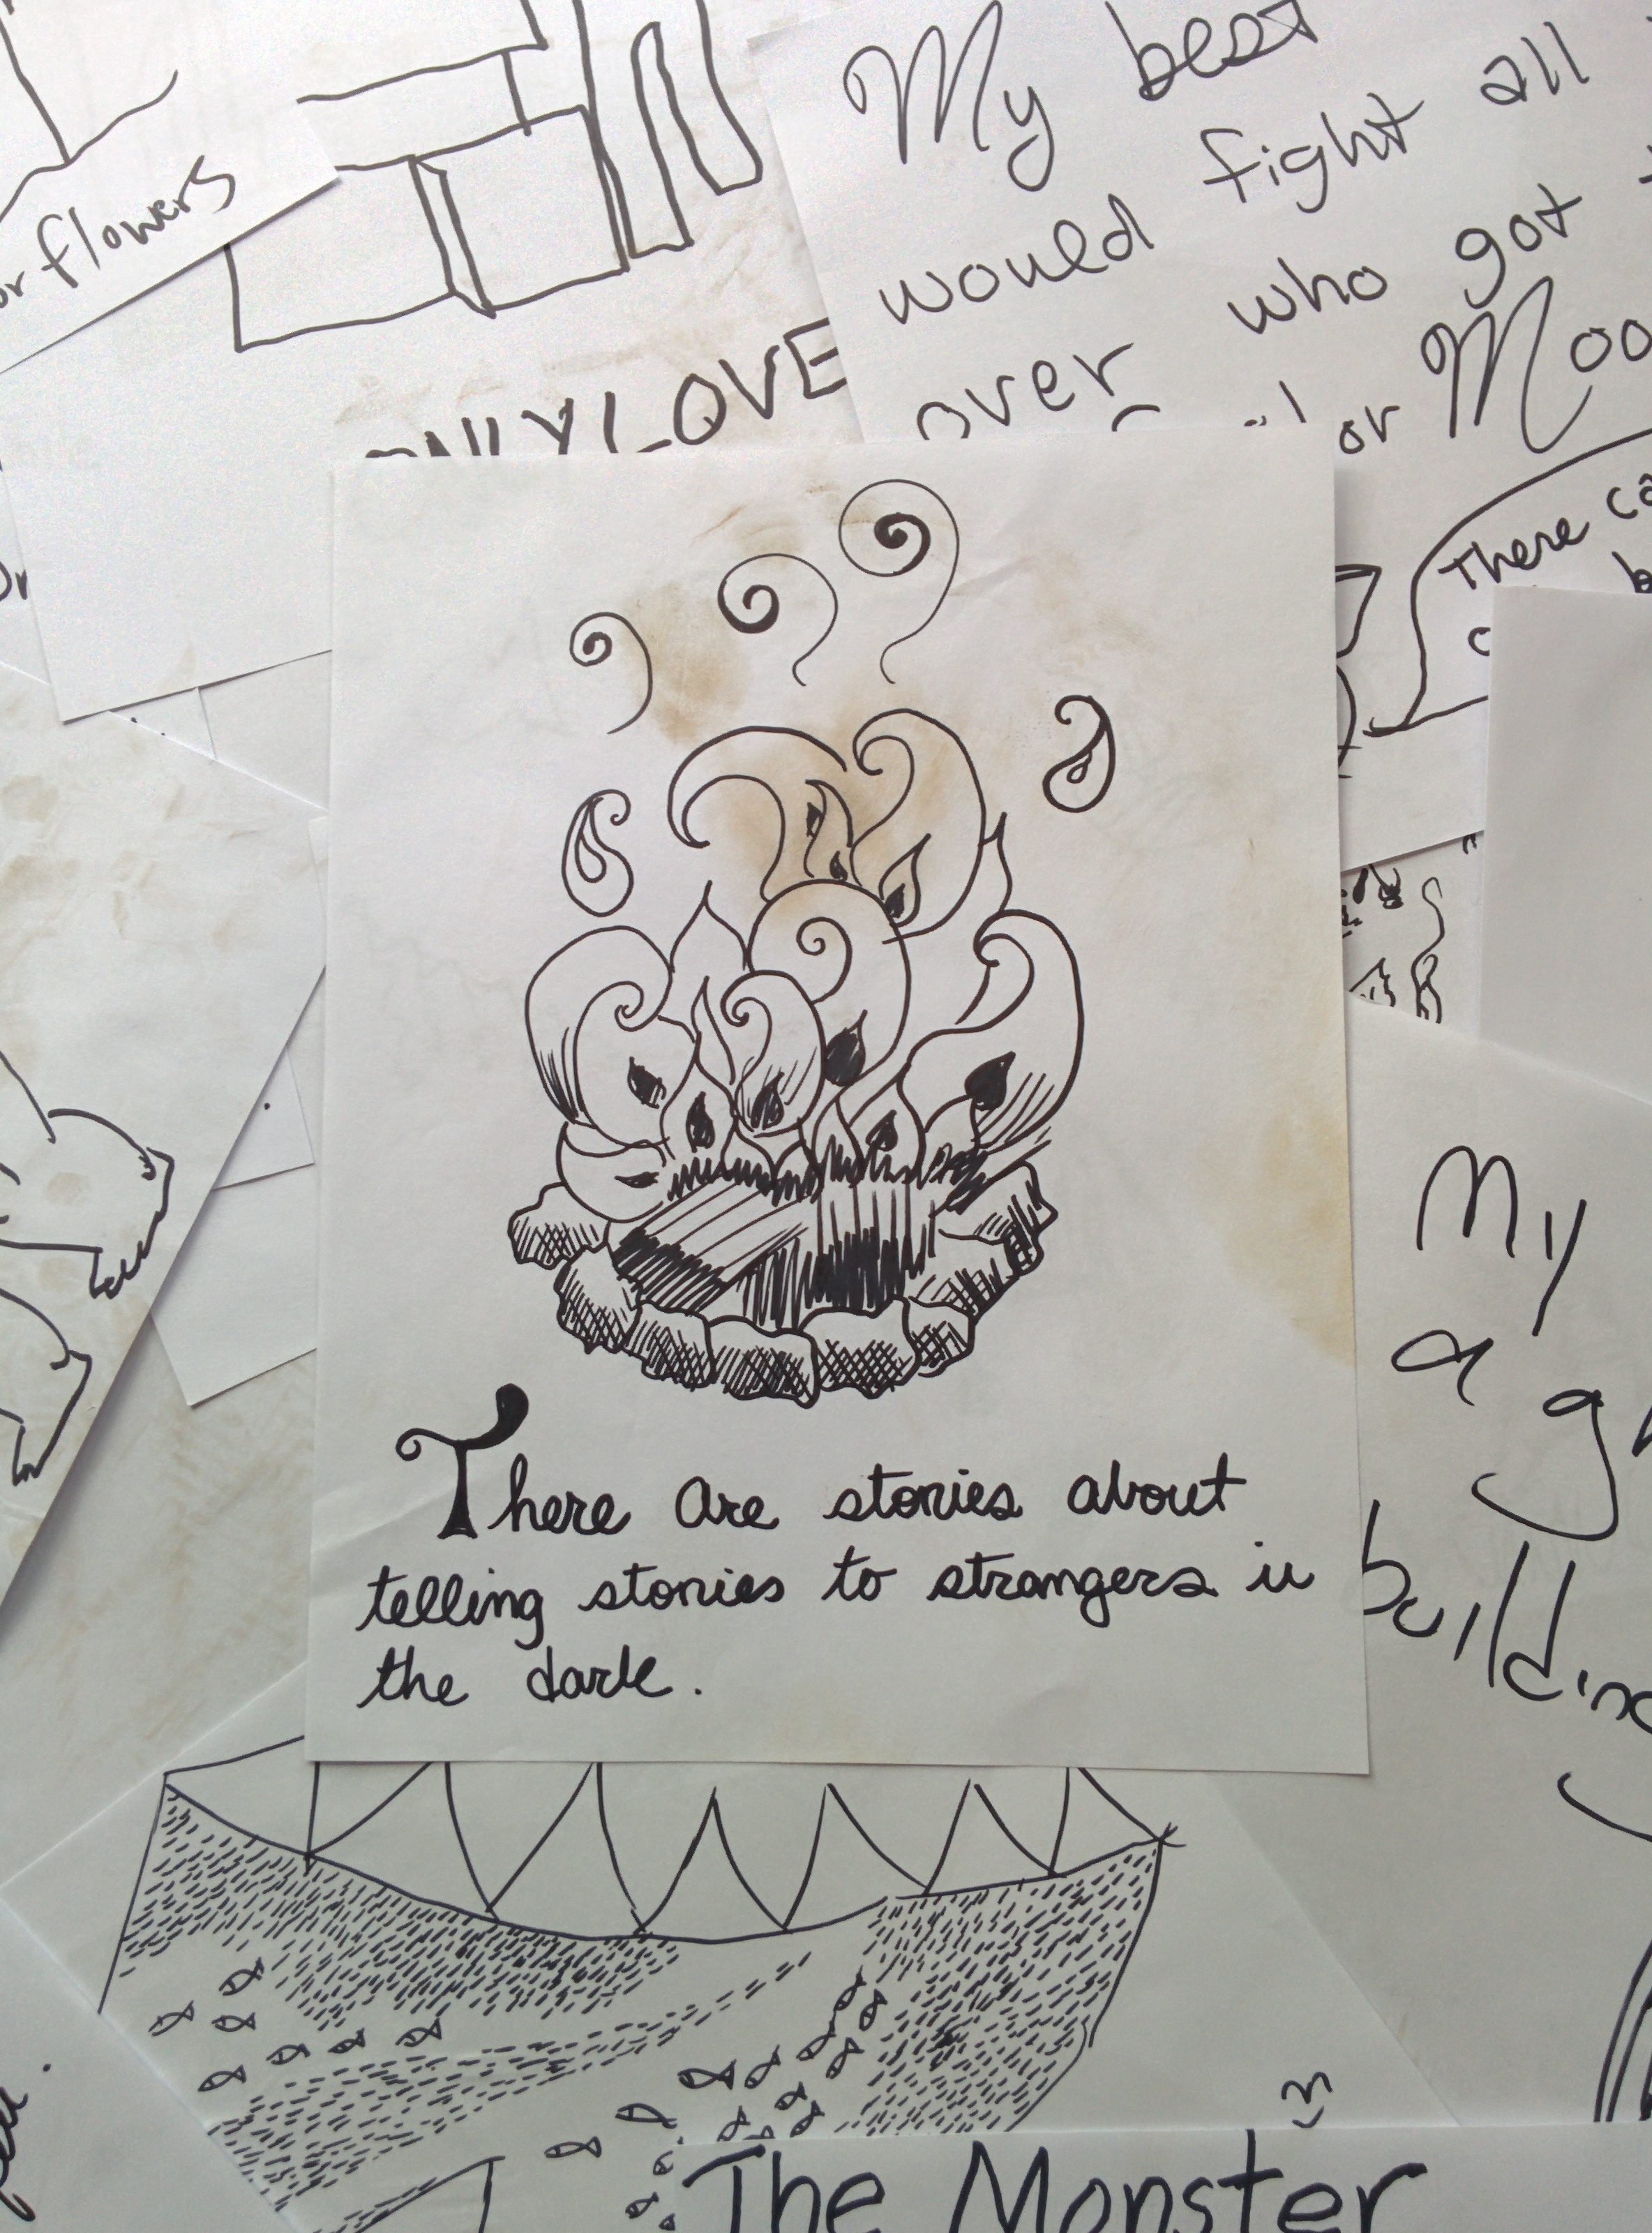 My best
would fight all
over who got
or Moo
or flowers
LOVE
There ca
There are stories about
telling stories to strangers in
the dark.
My
a g
buildin
The Monster